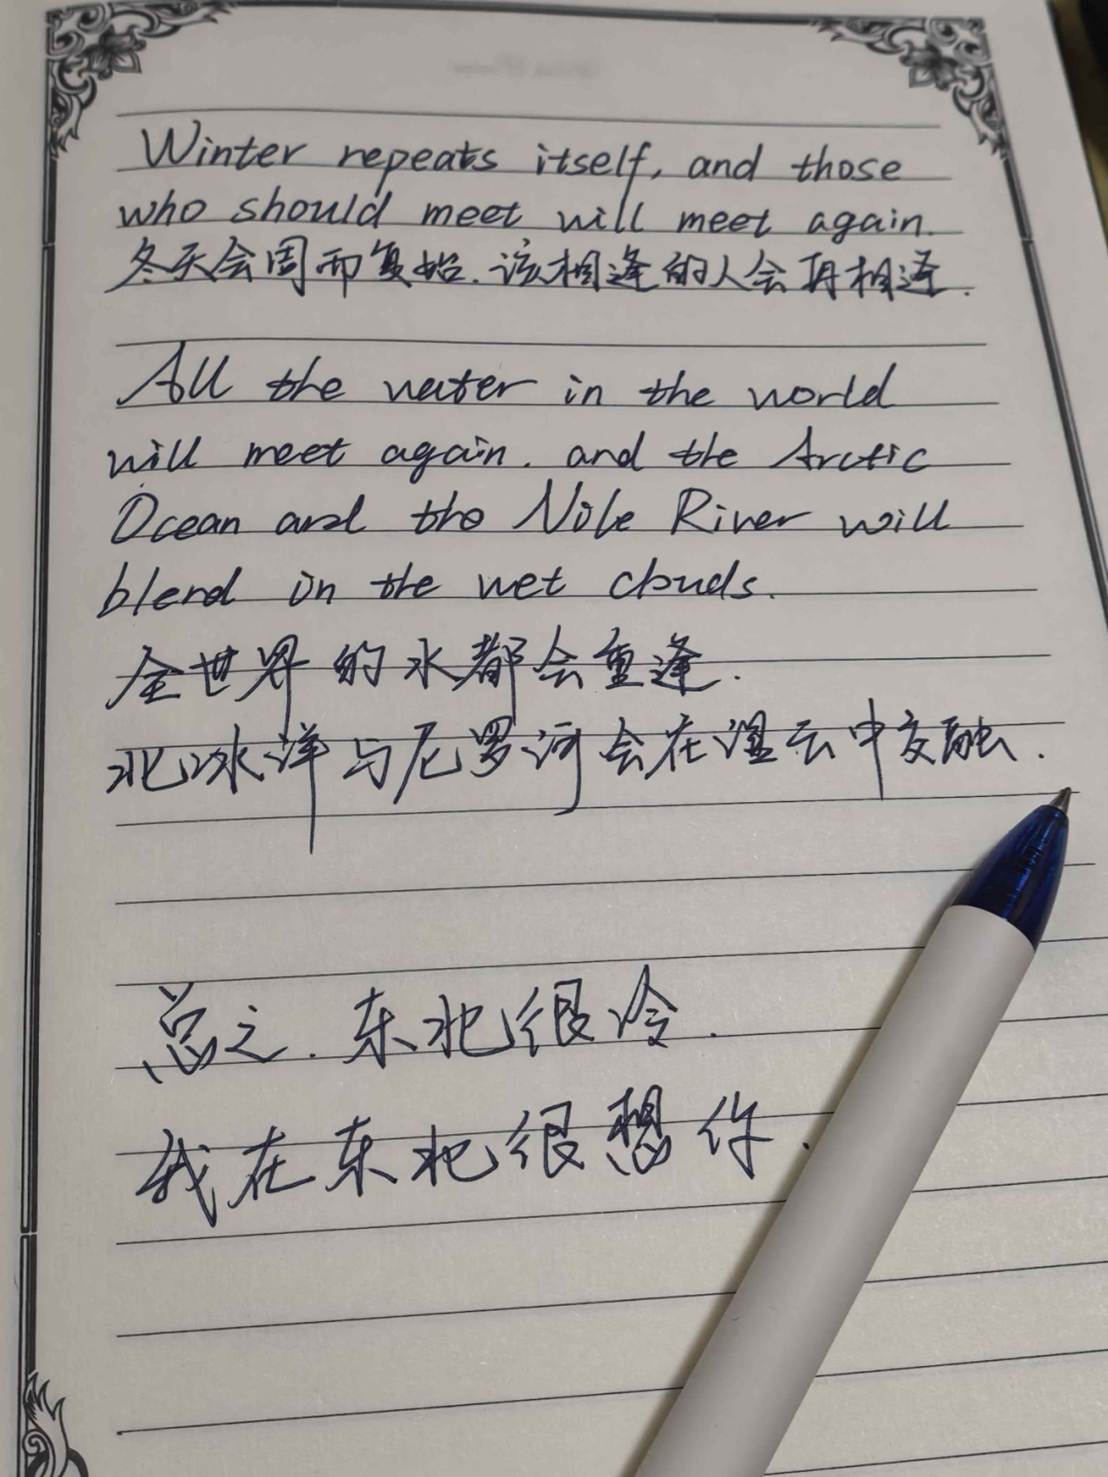 Winter repeats itself, and those
who should meet will meet again.
冬天会周而复始.该相逢的人会再相逢.
All the water in the world
will meet again. and the Arctic
Ocean and the Nile River will
blend in the wet clouds.
全世界的水都会重逢.
北冰洋与尼罗河会在湿云中交融.
总之.东北很冷.
我在东北很想你.